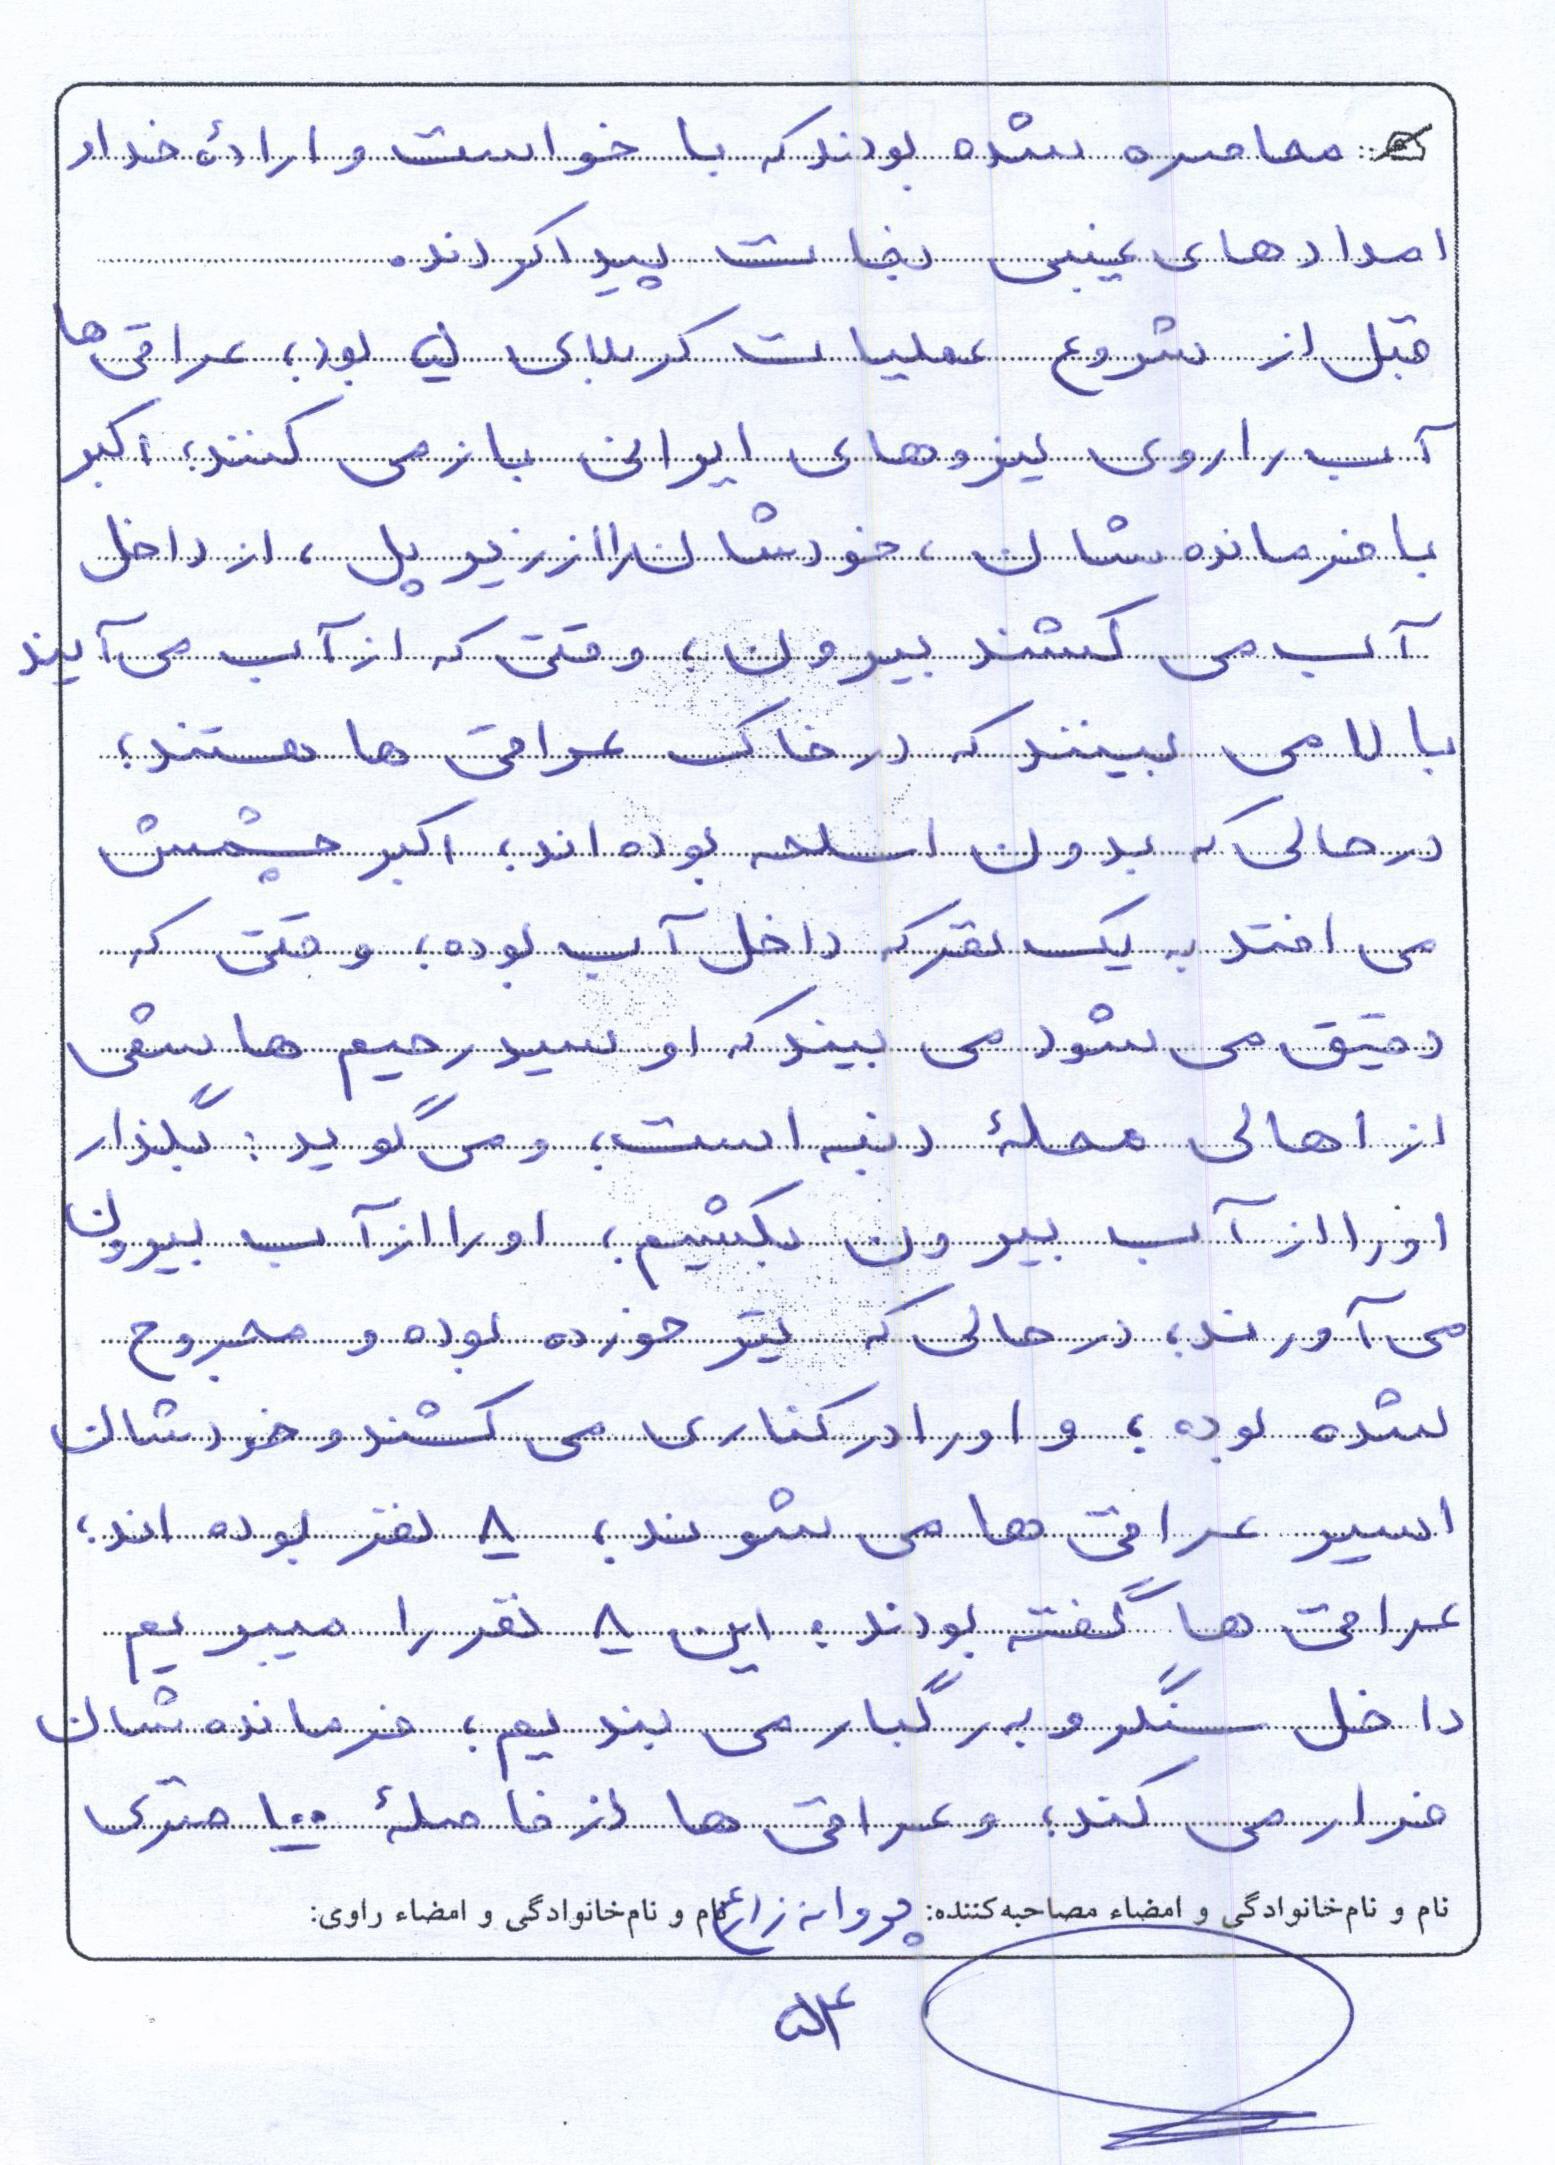 محاصره شده بودند که با خواست و ارادهٔ خدا و
امدادهای غیبی نجات پیدا کردند.
قبل از شروع عملیات کربلای ۵ بود؛ عراقی‌ها
آب را روی نیروهای ایرانی باز می کنند؛ اکبر
با فرمانده شان، خودشان را از زیر پل، از داخل
آب می کشند بیرون؛ وقتی که از آب می‌آیند
بالا می بینند که در خاک عراقی ها هستند؛
در حالی که بدون اسلحه بوده اند؛ اکبر چشمش
می افتد به یک نفر که داخل آب بوده؛ وقتی که
دقیق می شود می بیند که او سید رحیم هاشمی
از اهالی محلهٔ دنبه است؛ و می گوید: بگذار
او را از آب بیرون بکشیم؛ او را از آب بیرون
می آورند؛ در حالی که تیر خورده بوده و مجروح
شده بوده؛ و او را در کناری می کشند و خودشان
اسیر عراقی ها می شوند؛ ۸ نفر بوده اند؛
عراقی ها گفته بودند: این ۸ نفر را میبریم
داخل سنگر و به رگبار می بندیم؛ فرمانده شان
فرار می کند؛ و عراقی ها از فاصلهٔ ۱۰۰ متری
نام و نام‌خانوادگی و امضاء مصاحبه‌کننده: پروانه زارع نام و نام‌خانوادگی و امضاء راوی:
۵۴